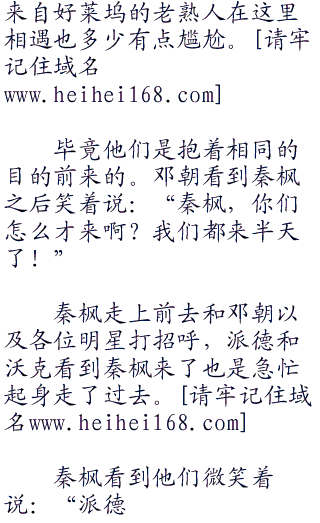 来自好莱坞的老熟人在这里
相遇也多少有点尴尬。[请牢
记住域名
www.heihei168.com]
毕竟他们是抱着相同的
目的前来的。邓朝看到秦枫
之后笑着说：“秦枫，你们
怎么才来啊？我们都来半天
了！”
秦枫走上前去和邓朝以
及各位明星打招呼，派德和
沃克看到秦枫来了也是急忙
起身走了过去。[请牢记住域
名www.heihei168.com]
秦枫看到他们微笑着
说：“派德